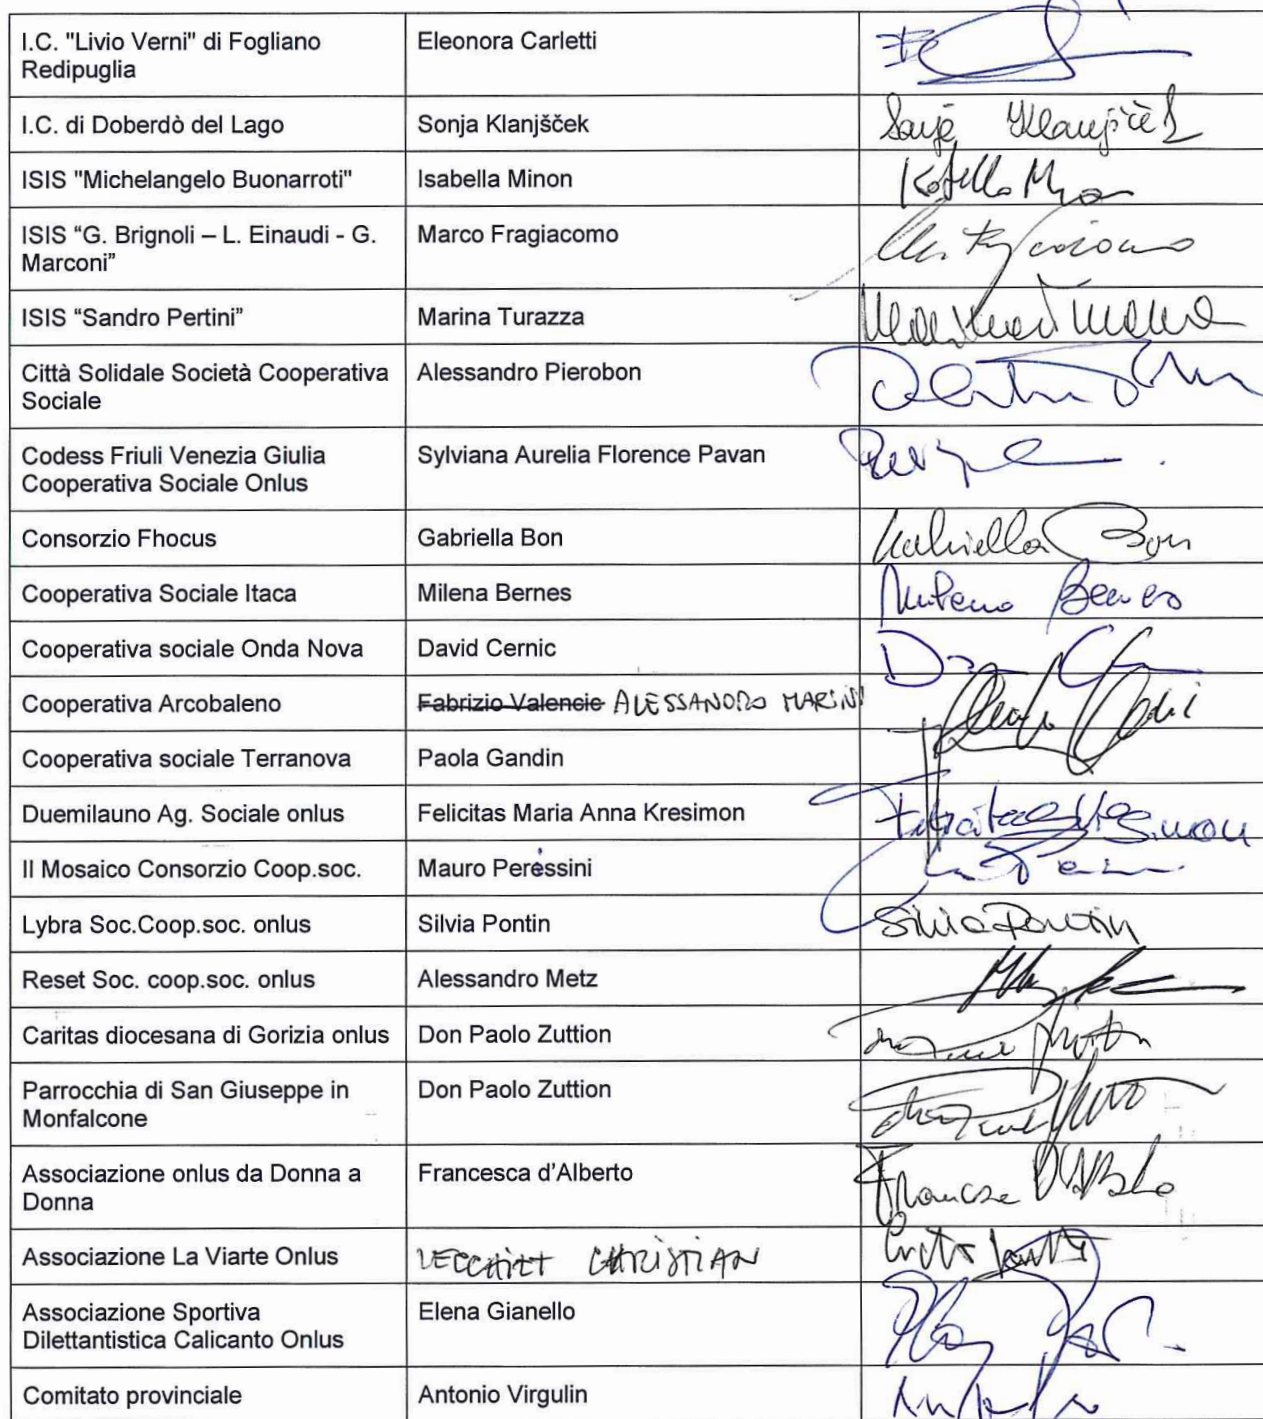 I.C. "Livio Verni" di Fogliano
Redipuglia
Eleonora Carletti
I.C. di Doberdò del Lago
Sonja Klanjšček
ISIS "Michelangelo Buonarroti"
Isabella Minon
ISIS “G. Brignoli – L. Einaudi - G.
Marconi”
Marco Fragiacomo
ISIS “Sandro Pertini”
Marina Turazza
Città Solidale Società Cooperativa
Sociale
Alessandro Pierobon
Codess Friuli Venezia Giulia
Cooperativa Sociale Onlus
Sylviana Aurelia Florence Pavan
Consorzio Fhocus
Gabriella Bon
Gabriella Bon
Cooperativa Sociale Itaca
Milena Bernes
Milena Bernes
Cooperativa sociale Onda Nova
David Cernic
Cooperativa Arcobaleno
Fabrizio Valencic ALESSANDRO MARINI
Cooperativa sociale Terranova
Paola Gandin
Duemilauno Ag. Sociale onlus
Felicitas Maria Anna Kresimon
Il Mosaico Consorzio Coop.soc.
Mauro Peressini
Lybra Soc.Coop.soc. onlus
Silvia Pontin
Silvia Pontin
Reset Soc. coop.soc. onlus
Alessandro Metz
Caritas diocesana di Gorizia onlus
Don Paolo Zuttion
Parrocchia di San Giuseppe in
Monfalcone
Don Paolo Zuttion
Associazione onlus da Donna a
Donna
Francesca d’Alberto
Associazione La Viarte Onlus
CHRISTIAN
Associazione Sportiva
Dilettantistica Calicanto Onlus
Elena Gianello
Comitato provinciale
Antonio Virgulin